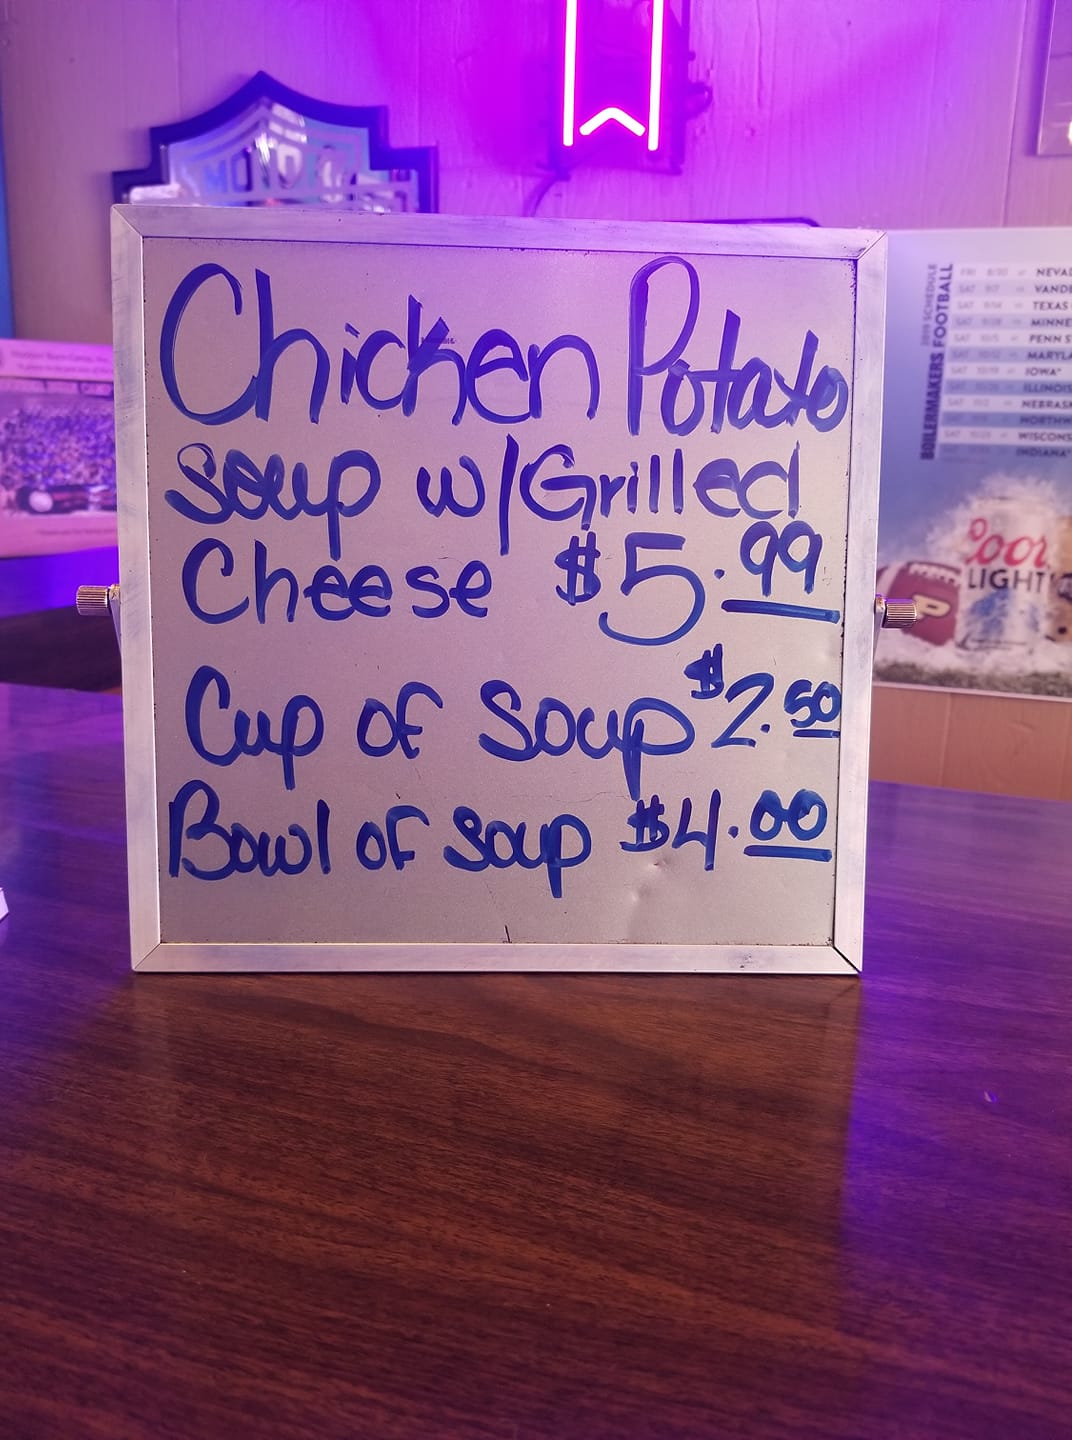 Chicken Potato
Soup w/Grilled
Cheese $5.99
Cup of Soup $2.50
Bowl of Soup $4.00
2019 SCHEDULE
BOILERMAKERS FOOTBALL
FRI 8/30 NEVAD
SAT 9/7 VANDE
SAT 9/14 TEXAS
SAT 9/28 MINNE
SAT 10/5 PENN S
SAT 10/12 MARYLA
SAT 10/19 IOWA*
SAT 10/26 ILLINOIS
SAT 11/2 NEBRASK
NORTHW
WISCONS
INDIANA*
Coor
LIGHT
P